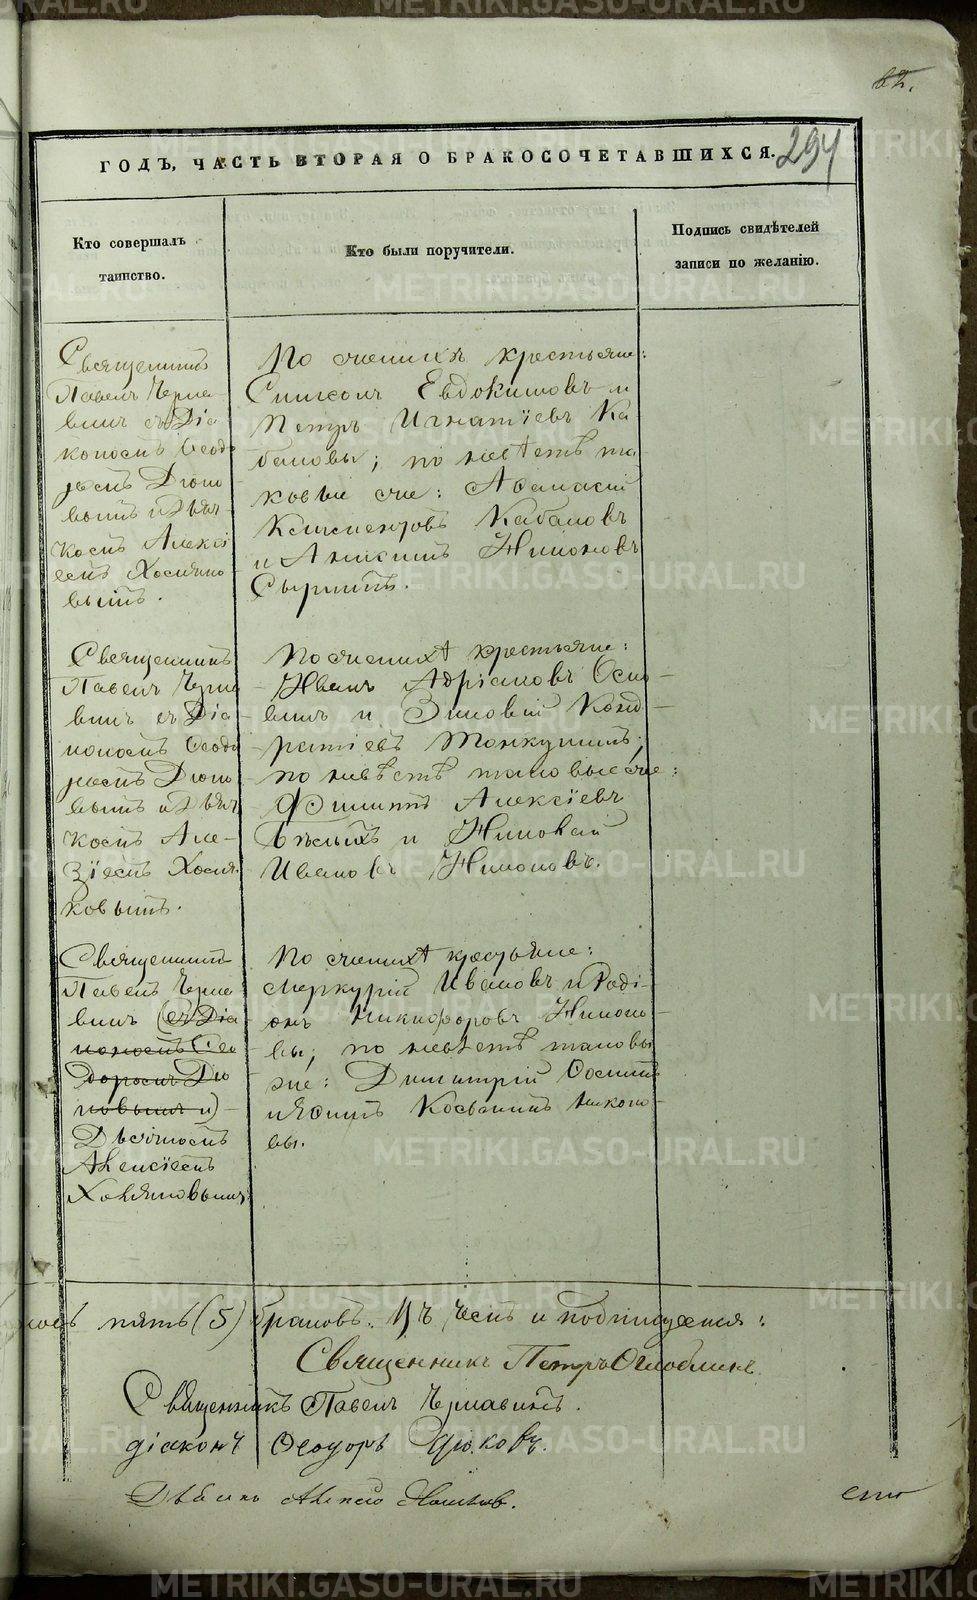 82.
ГОДЪ, ЧАСТЬ ВТОРАЯ О БРАКОСОЧЕТАВШИХСЯ.
294
Кто совершалъ
таинство.
Кто были поручители.
Подпись свидѣтелей
записи по желанію.
Священникъ
Павелъ Черня
винъ съ Діа
кономъ Ѳеодо
ромъ Дюко
вымъ и Дьяч-
комъ Алексі
емъ Хомяко
вымъ.
По женихѣ крестьяне:
Симеонъ Евдокимовъ и
Петръ Игнатіевъ Ка
бановы; по невѣстѣ та
ковые же: Аѳанасій
Климентовъ Кабановъ
и Анисимъ
Священникъ
Павелъ Черня
винъ съ Діа
кономъ Ѳеодо
ромъ Дюко
вымъ и Дьяч
комъ Але-
ксіемъ Хомя
ковымъ.
По женихѣ крестьяне:
Иванъ Адріановъ Оси
и Зиновій Конд
ратіевъ
по невѣстѣ таковые же:
Филиппъ Алексіевъ
Бѣлыхъ и
Ивановъ
Священникъ
Павелъ Черня
винъ (съ Діа
кономъ Ѳео
доромъ Дю
ковымъ и)
Дьячкомъ
Алексіемъ
Хомяковымъ
По женихѣ крестьяне:
Меркурій Ивановъ и Роді-
онъ Никифоровъ
вы; по невѣстѣ таковы
же: Димитрій
и
вы.
пять (5) браковъ. Въ чемъ и подписуемся:
Священникъ Петръ Оглоблинъ
Священникъ Павелъ Чернявинъ.
діаконъ Ѳеодоръ Дюковъ.
Дьячекъ Алексій Хомяковъ.
METRIKI.GASO-URAL.RU